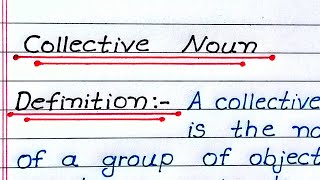 Collective Noun
Definition:- A collective
is the
of a group of object